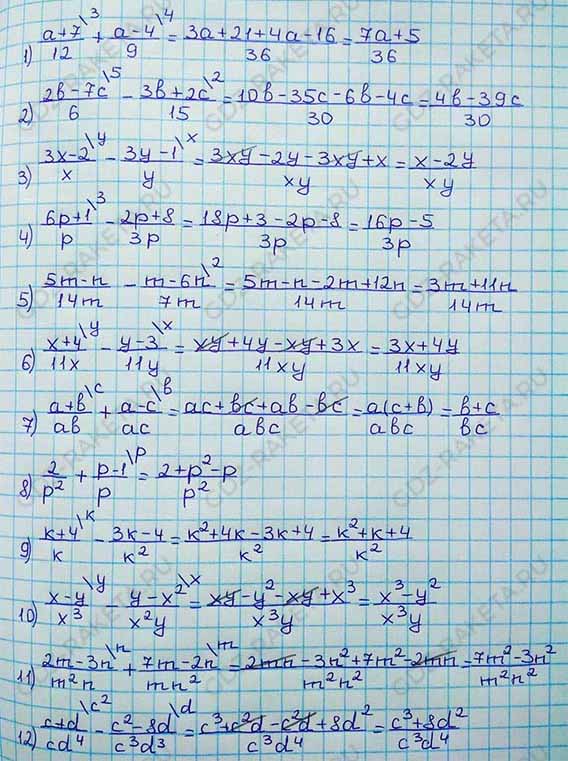 1) a+7\3/12 + a-4\4/9 = 3a+21+4a-16/36 = 7a+5/36
2) 2в-7c\5/6 - 3в+2c\2/15 = 10в-35c-6в-4c/30 = 4в-39c/30
3) 3x-2\y/x - 3y-1\x/y = 3xy-2y-3xy+x/xy = x-2y/xy
4) 6p+1\3/p - 2p+8/3p = 18p+3-2p-8/3p = 16p-5/3p
5) 5m-n/14m - m-6n\2/7m = 5m-n-2m+12n/14m = 3m+11n/14m
6) x+4\y/11x - y-3\x/11y = xy+4y-xy+3x/11xy = 3x+4y/11xy
7) a+в\c/aв + a-c\в/ac = ac+вc+aв-вc/aвc = a(c+в)/aвc = в+c/вc
8) 2/p² + p-1\p/p = 2+p²-p/p²
9) к+4\к/к - 3к-4/к² = к²+4к-3к+4/к² = к²+к+4/к²
10) x-y\y/x³ - y-x²\x/x²y = xy-y²-xy+x³/x³y = x³-y²/x³y
11) 2m-3n\n/m²n + 7m-2n\m/mn² = 2mn-3n²+7m²-2mn/m²n² = 7m²-3n²/m²n²
12) c+d\c²/cd⁴ - c²-8d\d/c³d³ = c³+c²d-c²d+8d²/c³d⁴ = c³+8d²/c³d⁴
GDZ-RAKETA.RU